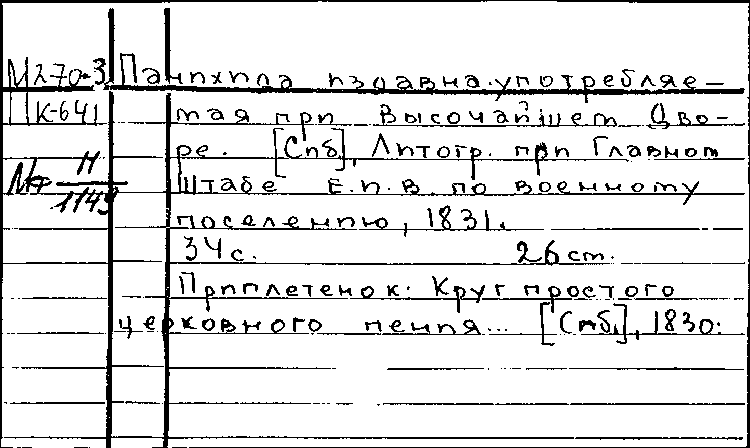 М270-3 Панихида издавна употребляе-
П К-641 мая при Высочайшем Дво-
ре. [Спб], Литогр. при Главном
М Н/1149 Штабе Е.И.В. по военному
поселению, 1831.
34 с. 26 см.
Приплетенок: Круг простого
церковного пения... [Спб.], 1830.